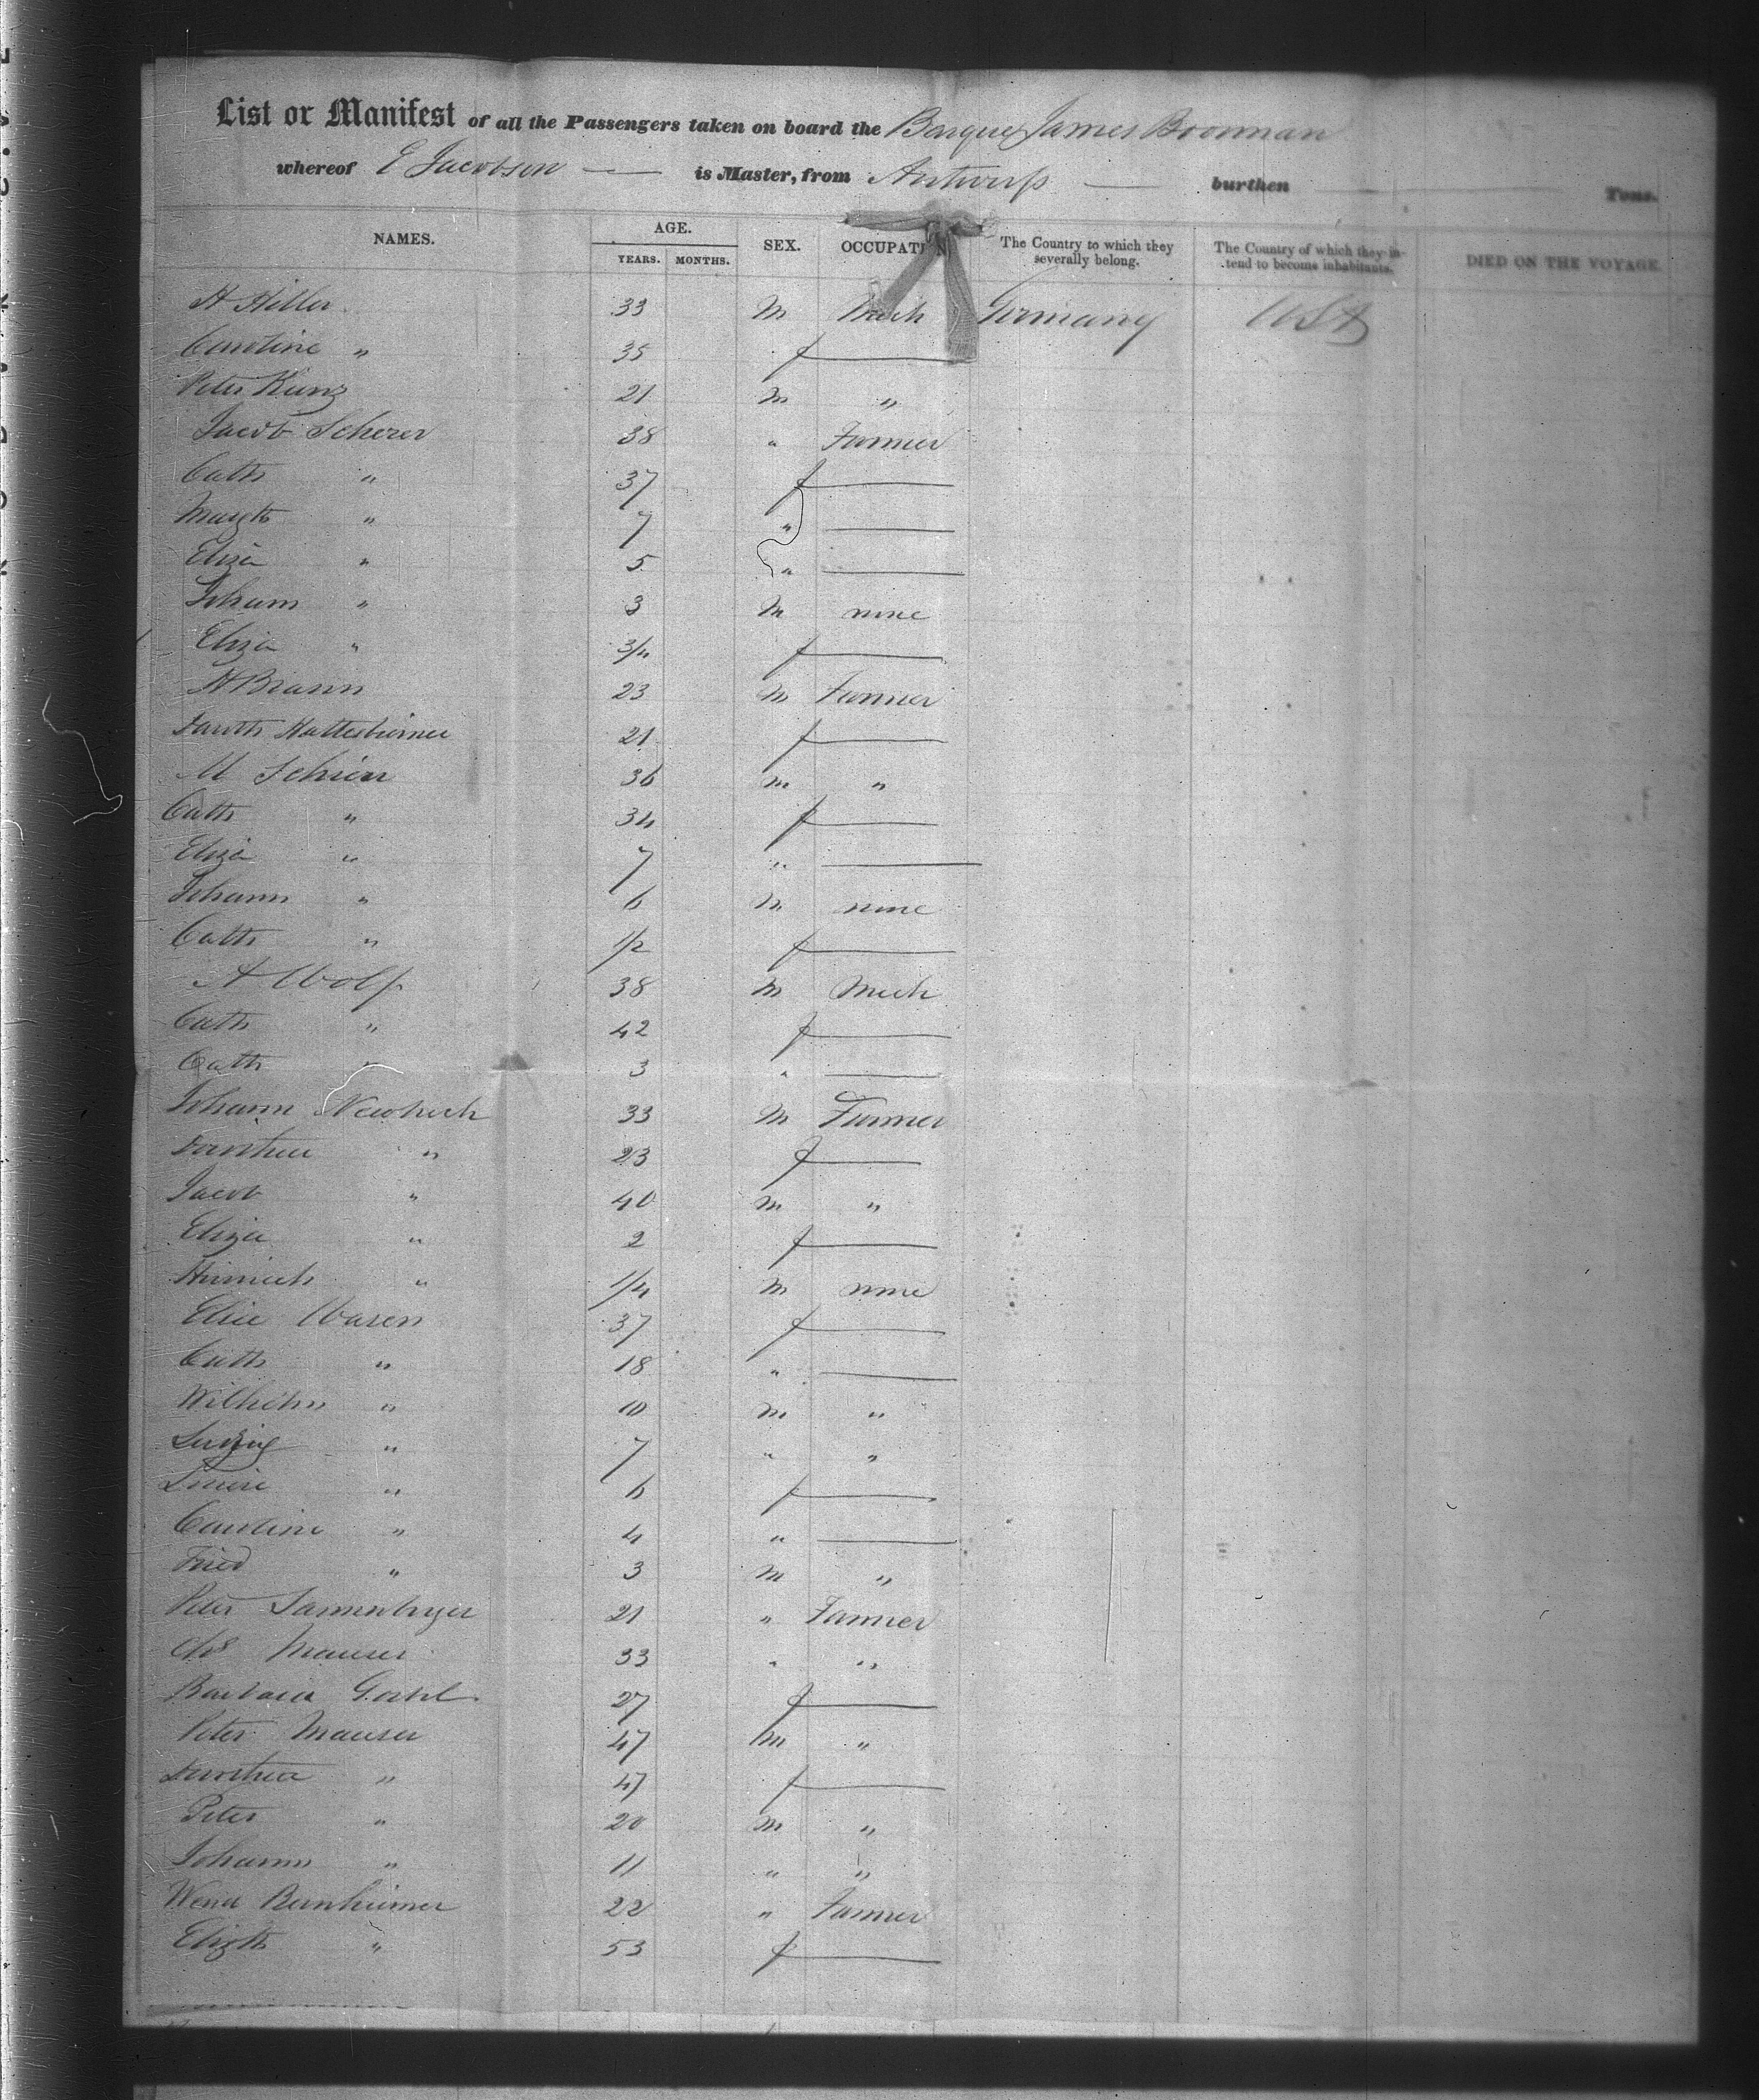 List or Manifest of all the Passengers taken on board the Barque James Boorman
whereof E Jacobson is Master, from Antwerp burthen Tons.
NAMES. AGE. YEARS. MONTHS. SEX. OCCUPATION The Country to which they severally belong. The Country of which they intend to become inhabitants. DIED ON THE VOYAGE.
H Hiller 33 M Mech Germany USA
Caroline " 35 f
Peter Kunz 21 M "
Jacob Scherer 38 " Farmer
Cath " 37 f
Margth " 7 "
Eliza " 5 "
Johann " 3 M none
Eliza " 3/4 f
H Braun 23 M Farmer
21 f
M 36 M "
Cath " 34 f
Eliza " 7 "
Johann " 6 M none
Cath " 1/2 f
A Wolf 38 M Mech
Cath " 42 f
Cath " 3 "
Johann 33 M Farmer
Dorothea " 23 f
Jacob " 40 M "
Eliza " 2 f
Heinrich " 1/4 M none
Elise 37 f
Cath " 18 "
Wilhelm " 10 M "
Ludwig " 7 " "
Louise " 6 f
Caroline " 4 "
Fried " 3 M "
Peter 21 " Farmer
Chs Mauser 33 " "
Barbara 27 f
Peter Mauser 47 M "
Dorothea " 47 f
Peter " 20 M "
Johann " 11 " "
22 " Farmer
Elizth " 53 f